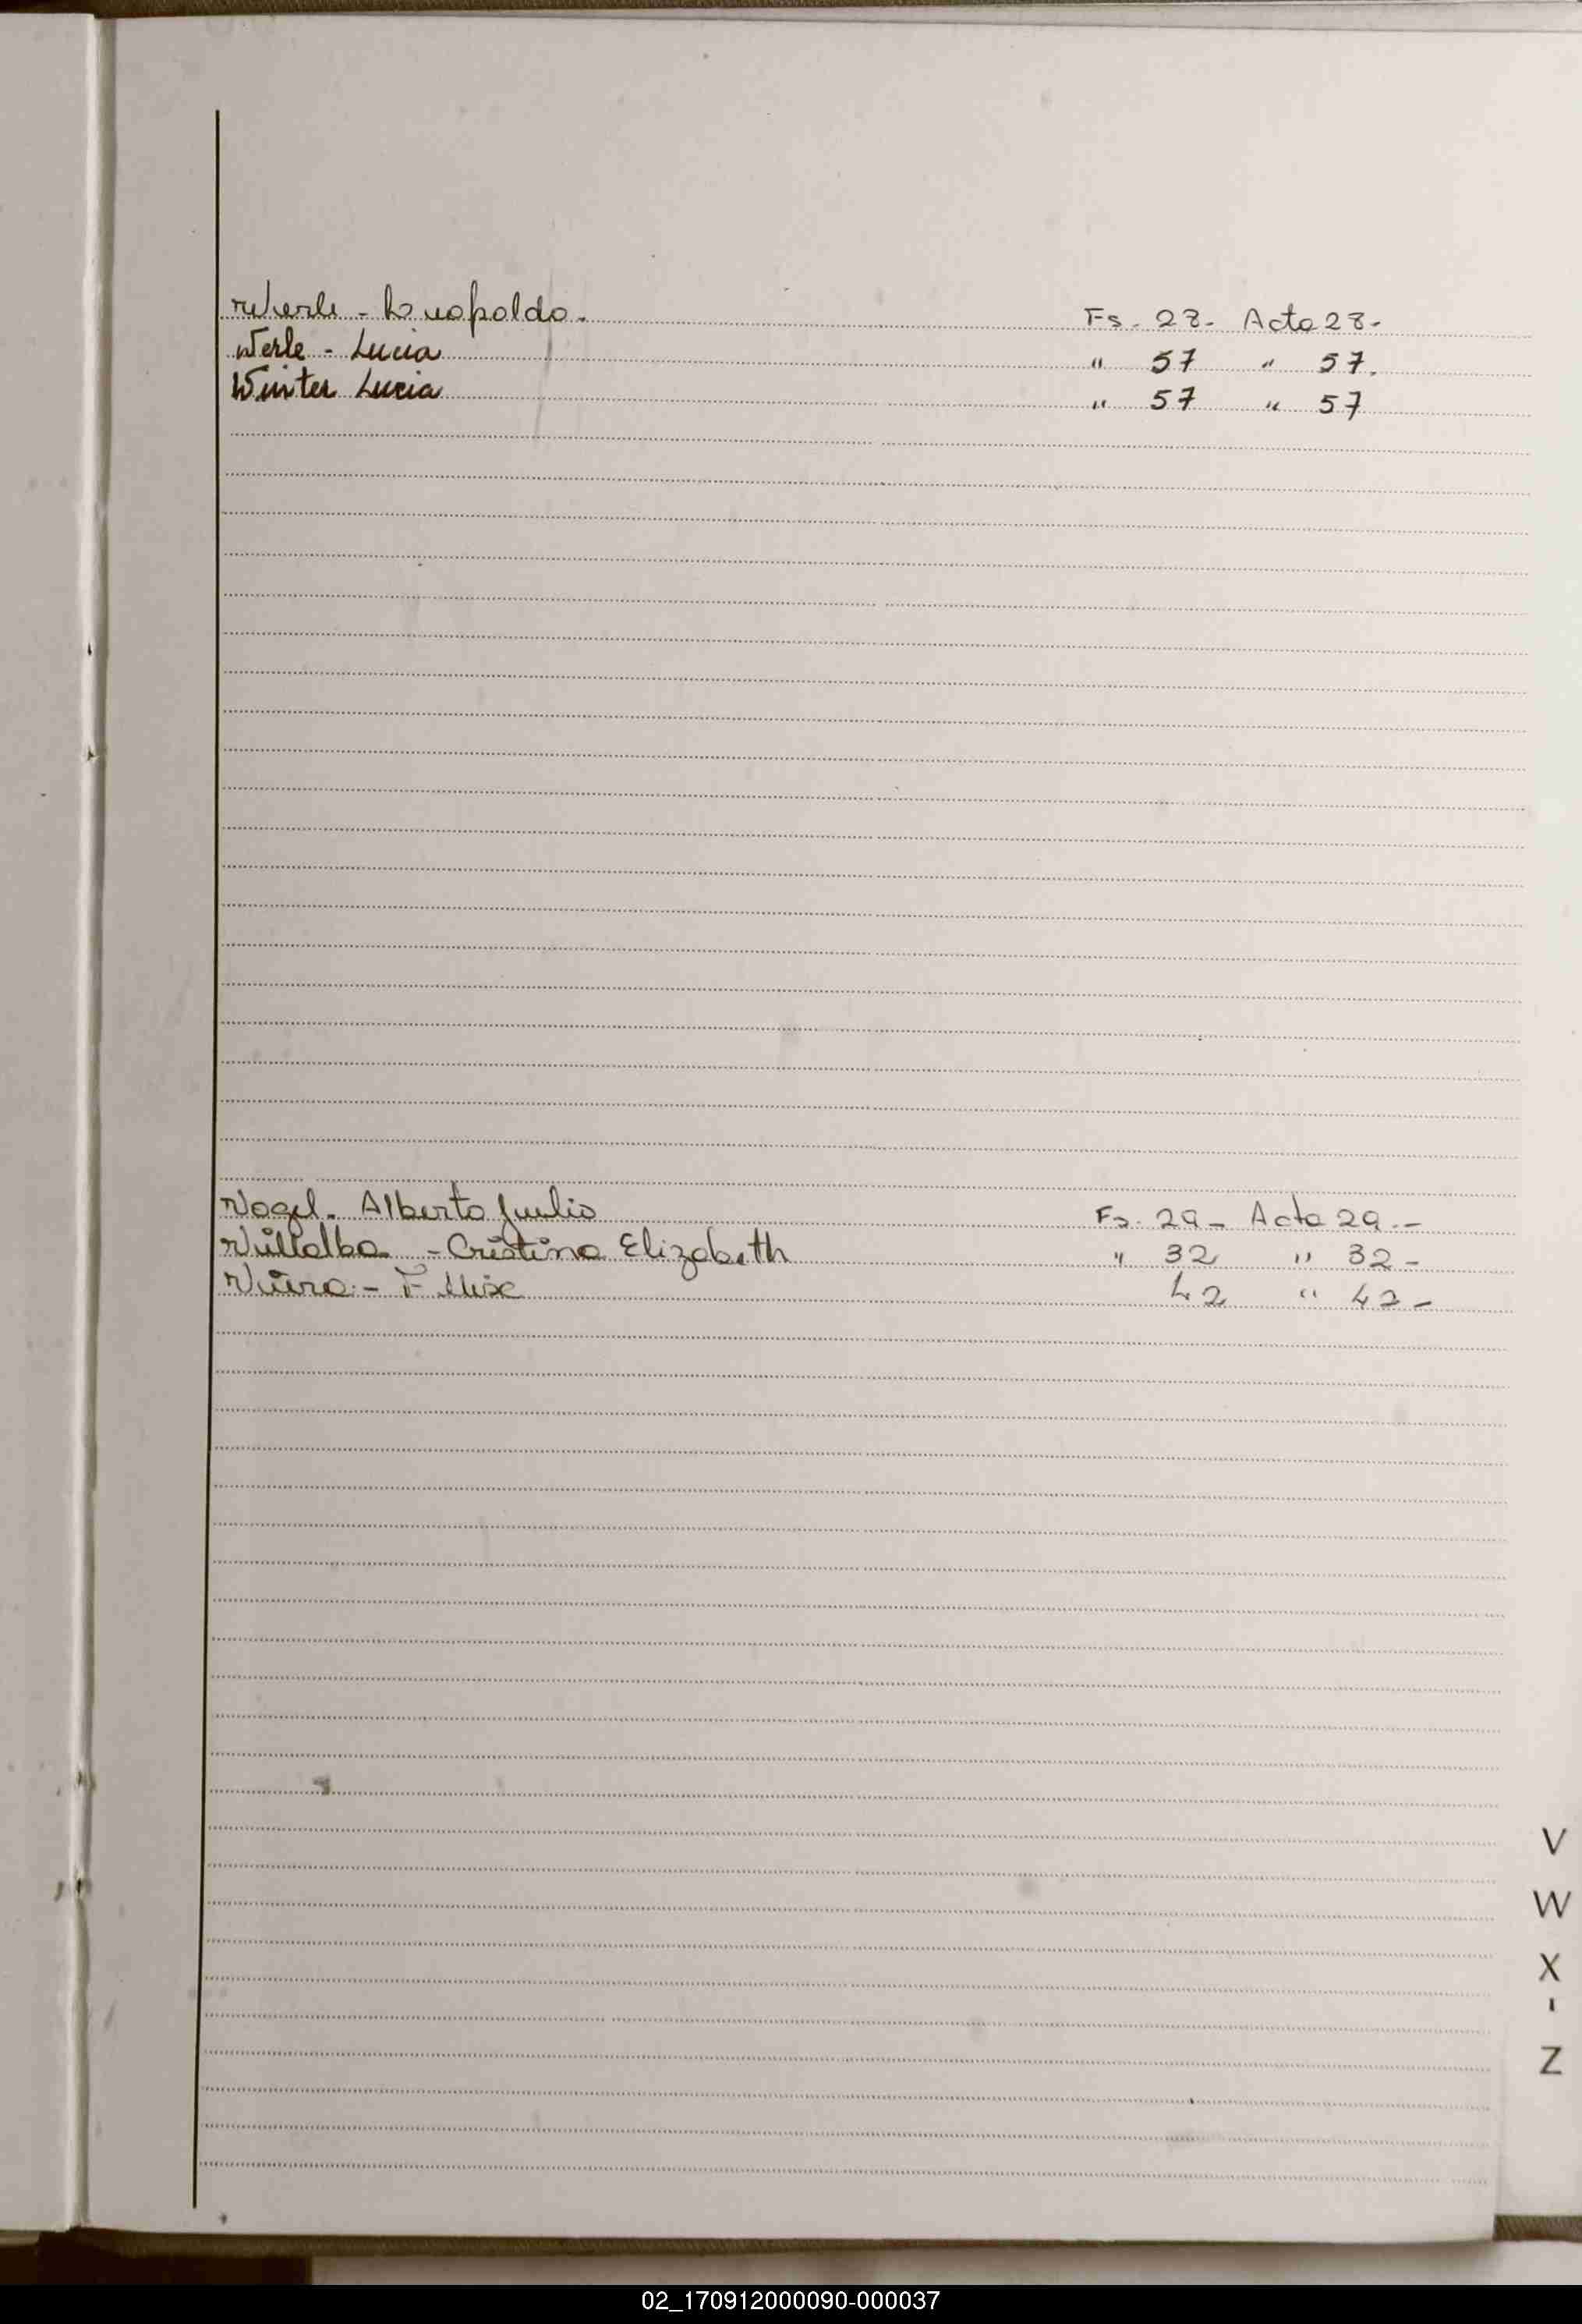 Werle - Leopoldo. Fs. 28. Acta 28.
Werle - Lucia " 57 " 57.
Winter Lucia " 57 " 57
Vogel. Alberto Julio Fs. 29 - Acta 29.-
Villalba - Cristina Elizabeth " 32 " 32 -
Viera - F 42 " 42 -
V
W
X
-
Z
02_170912000090-000037